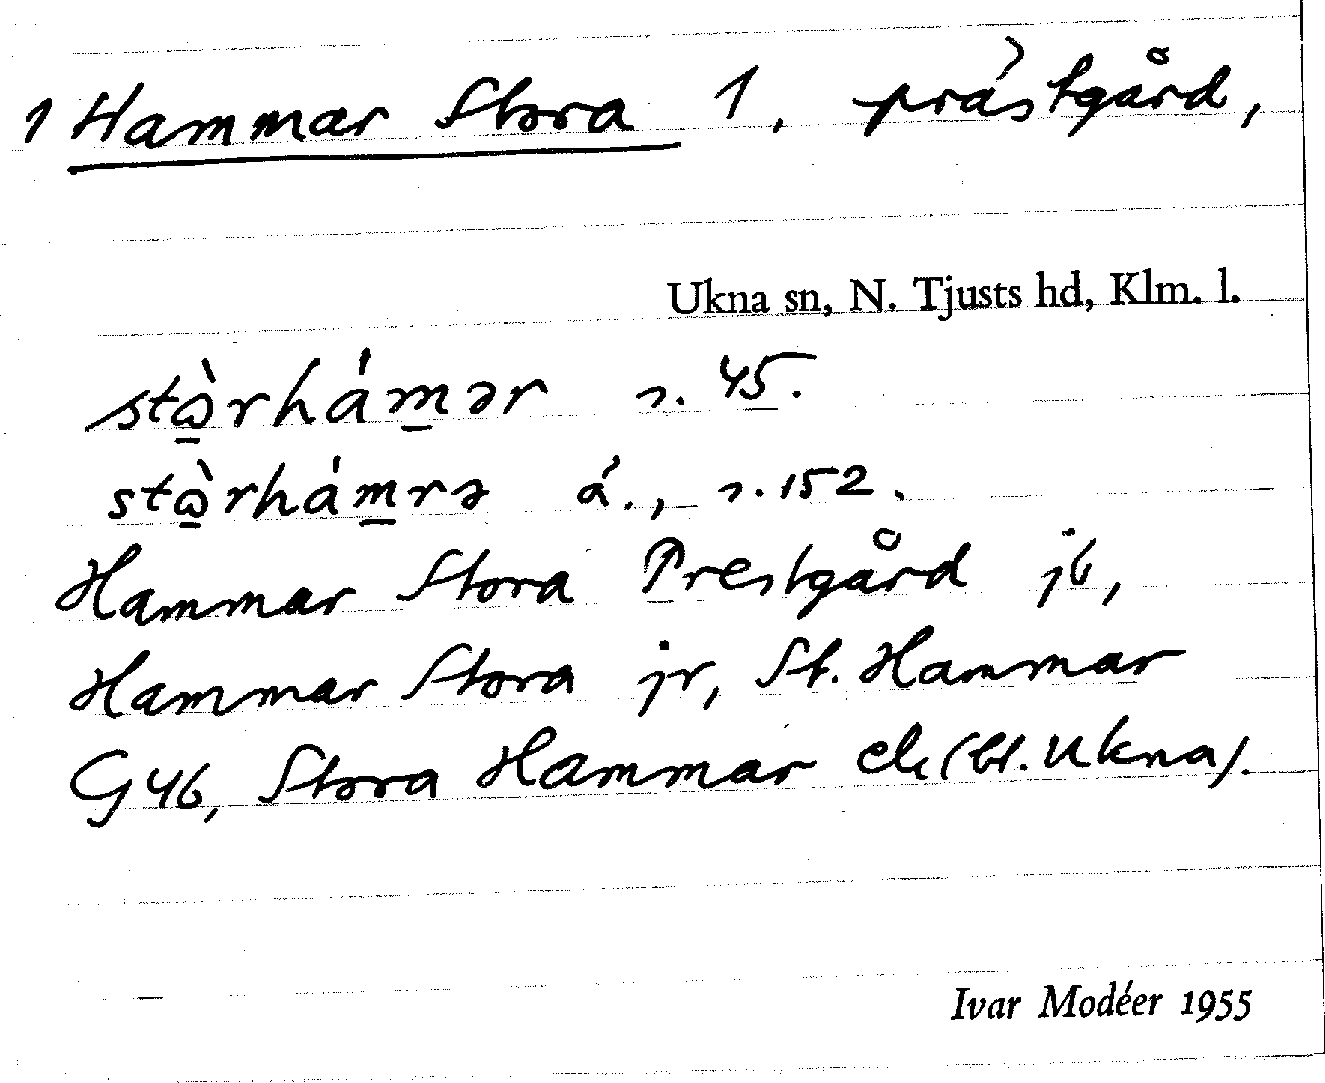 1 Hammar Stora 1, prästgård,
Ukna sn, N. Tjusts hd, Klm. l.
stὼ̱rhám̱ər s. 45.
stὼ̱rhám̱rə á., s. 152.
Hammar Stora Prestgård jb,
Hammar Stora jr, St. Hammar
G46, Stora Hammar ek (bl. Ukna).
Ivar Modéer 1955